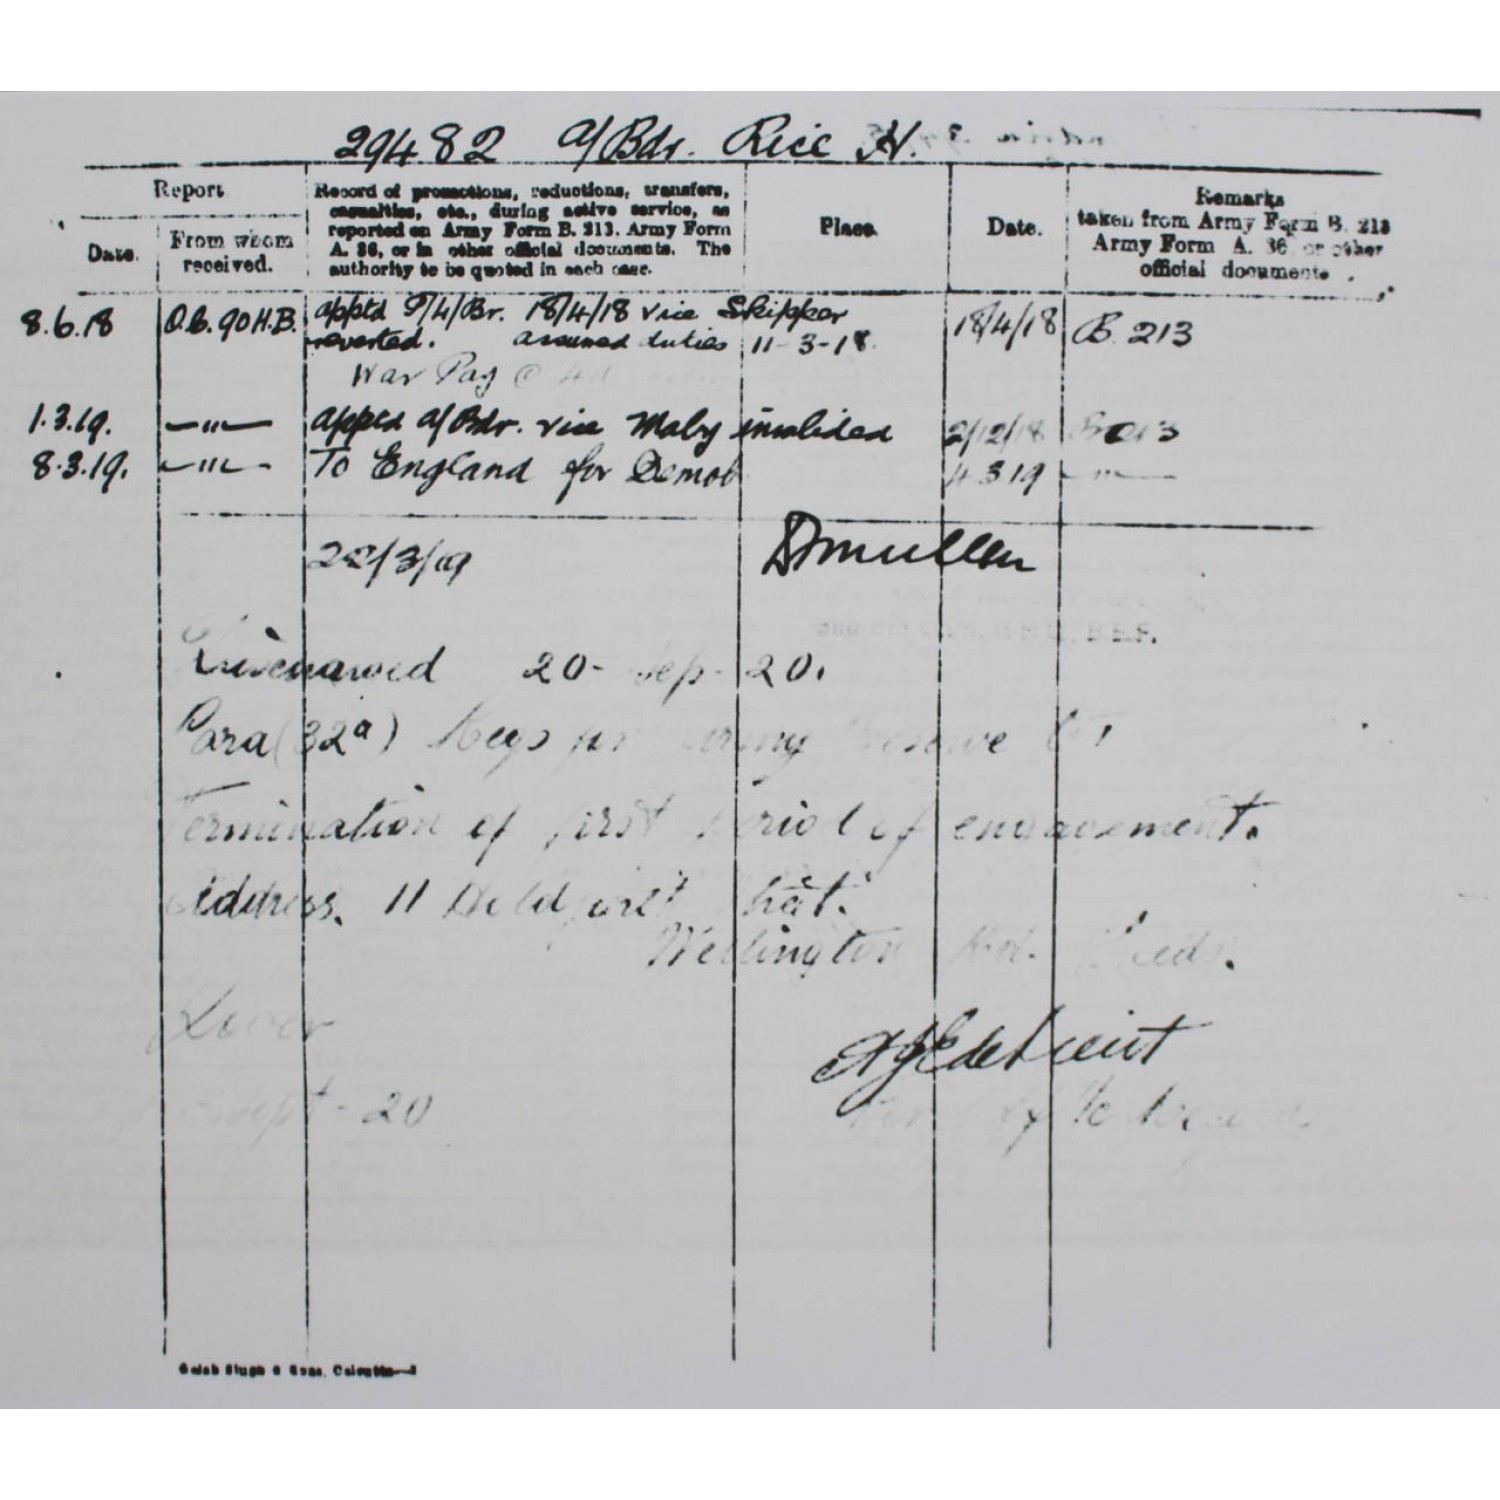 29482 a/Bdr. Rice H.
Report
Record of promotions, reductions, transfers,
casualties, etc., during active service, as
reported on Army Form B. 213, Army Form
A. 36, or in other official documents. The
authority to be quoted in each case.
Place.
Date.
Remarks
taken from Army Form B. 213
Army Form A. 36 or other
official documents.
Date.
From whom
received.
8.6.18 O.C. 90 H.B. apptd P/A/Br. 18/4/18 vice Skipper 18/4/18 B. 213
reverted. assumed duties 11-3-18.
War Pay @ 4d
1.3.19. —"— apptd a/Bdr. vice Maby invalided 2/12/18 B 213
8.3.19. —"— To England for Demob 4 3 19 —"—
/3/19
B.E.F.
20- Sep- 20.
Para (32a) Regs for Army Reserve
Termination of first period of engagement.
Address. 11
Wellington Rd. Leeds.
Dover
Sept- 20
Gulab Singh & Sons, Calcutta